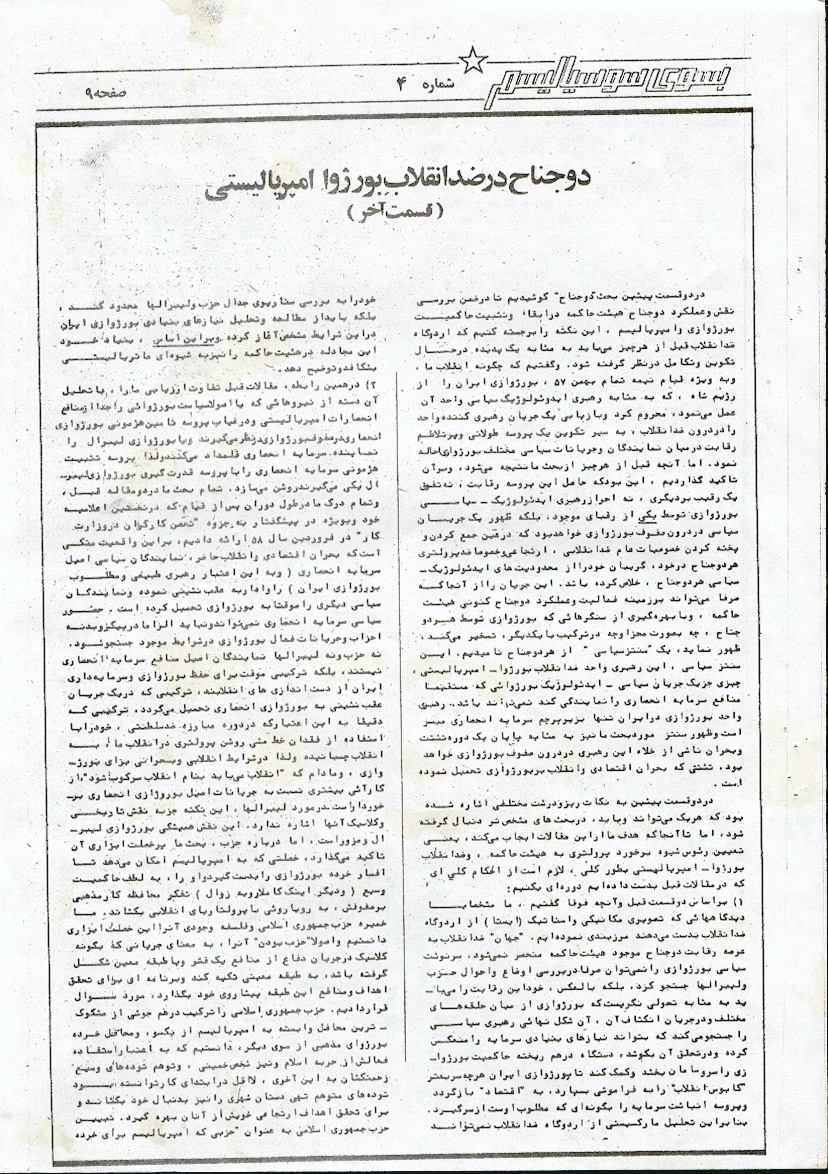 بسوی سوسیالیسم
شماره ۴
صفحه ۹
دو جناح در ضد انقلاب بورژوا امپریالیستی
( قسمت آخر )
در دو قسمت پیشین بحث "دو جناح" کوشیدیم تا در ضمن بررسی
نقش و عملکرد دو جناح هیئت حاکمه در ابقاء و تثبیت حاکمیت
بورژوازی و امپریالیسم ، این نکته را برجسته کنیم که اردوگاه
ضد انقلاب قبل از هر چیز می‌باید به مثابه یک پدیده در حال
تکوین و تکامل در نظر گرفته شود. و گفتیم که چگونه انقلاب ما ،
و به ویژه قیام نیمه تمام بهمن ۵۷ ، بورژوازی ایران را از
رژیم شاه ، که به مثابه رهبری ایدئولوژیک سیاسی واحد آن
عمل می‌نمود، محروم کرد و بازیابی یک جریان رهبری کننده واحد
را در درون ضد انقلاب، به سیر تکوین یک پروسه طولانی و پرتلاطم
رقابت در میان نمایندگان و جریانات سیاسی مختلف بورژوازی احاله
نمود. اما آنچه قبل از هر چیز از بحث ما نتیجه می‌شود، و بر آن
تاکید گذاردیم ، این بود که حاصل این پروسه رقابت ، نه تفوق
یک رقیب بر دیگری ، نه احراز رهبری ایدئولوژیک - سیاسی
بورژوازی توسط یکی از رقبای موجود، بلکه ظهور یک جریان
سیاسی در درون صفوف بورژوازی خواهد بود که در عین جمع کردن و
پخته کردن خصوصیات عام ضد انقلابی ، ارتجاعی و خصوصا ضد پرولتری
هر دو جناح در خود، گریبان خود را از محدودیت های ایدئولوژیک-
سیاسی هر دو جناح ، خلاص کرده باشد. این جریان را از آنجا که
صرفا می‌تواند بر زمینه فعالیت و عملکرد دو جناح کنونی هیئت
حاکمه ، و با بهره‌گیری از سنگرهائی که بورژوازی توسط هر دو
جناح ، چه بصورت مجزا و چه در ترکیب با یکدیگر، تسخیر می‌کند،
ظهور نماید، یک "سنتز سیاسی " از هر دو جناح نامیدیم. این
سنتز سیاسی ، این رهبری واحد ضد انقلاب بورژوا- امپریالیستی ،
چیزی جز یک جریان سیاسی - ایدئولوژیک بورژوائی که مستقیما
منافع سرمایه انحصاری را نمایندگی کند نمی‌تواند باشد. رهبری
واحد بورژوازی در ایران تنها بزیر پرچم سرمایه انحصاری میسر
است و ظهور سنتز مورد بحث ما نیز به مثابه پایان یک دوره تشتت
و بحران ناشی از خلاء این رهبری در درون صفوف بورژوازی خواهد
بود. تشتتی که بحران اقتصادی و انقلاب بر بورژوازی تحمیل نموده
است .
در دو قسمت پیشین به نکات ریز و درشت مختلفی اشاره شده
بود که هر یک می‌تواند و باید، در بحث های مشخص‌تر دنبال گرفته
شود، اما تا آنجا که هدف ما از این مقالات ایجاب می‌کند، یعنی
تعیین رئوس شیوه برخورد پرولتری به هیئت حاکمه ، و ضد انقلاب
بورژوا- امپریالیستی بطور کلی ، لازم است از احکام کلی ای
که در مقالات قبل بدست داده ایم دوره ای بکنیم :
۱) بر اساس دو قسمت قبل و آنچه فوقا گفتیم ، ما مشخصا با
دیدگاههائی که تصویری مکانیکی و استاتیک (ایستا ) از اردوگاه
ضد انقلاب بدست می‌دهند مرزبندی نموده‌ایم. "جهان" ضد انقلاب به
عرصه رقابت دو جناح موجود هیئت حاکمه منحصر نمی‌شود. سرنوشت
سیاسی بورژوازی را نمی‌توان صرفا در بررسی اوضاع و احوال حزب
و لیبرالها جستجو کرد. بلکه بالعکس ، خود این رقابت را می‌با-
ید به مثابه تحولی نگریست که بورژوازی از میان حلقه های
مختلف و در جریان انکشاف آن ، آن شکل نهائی رهبری سیاسی
را جستجو می‌کند که بتواند نیازهای بنیادی سرمایه را منعکس
کرده و در تحقق آن بکوشد، دستگاه در هم ریخته حاکمیت بورژوا-
زی را سر و سامان بخشد و کمک کند تا بورژوازی ایران هر چه سریعتر
"کابوس انقلاب" را به فراموشی بسپارد، به "اقتصاد" بازگردد
و پروسه انباشت سرمایه را بگونه ای که مطلوب اوست از سر گیرد.
بنابراین تحلیل مارکسیستی از اردوگاه ضد انقلاب نمی‌تواند
خود را به بررسی سناریوی جدال حزب و لیبرالها محدود کند ،
بلکه باید از مطالعه و تحلیل نیازهای بنیادی بورژوازی ایران
در این شرایط مشخص آغاز کرده و بر این اساس ، بنیاد خود
این مجادله در هیئت حاکمه را نیز به شیوه‌ای ماتریالیستی
بشکافد و توضیح دهد.
۲) در همین رابطه ، مقالات قبل تفاوت ارزیابی ما را، با تحلیل
آن دسته از نیروهائی که یا اصولا سیاست بورژوائی را جدا از منافع
انحصارات امپریالیستی و در غیاب پروسه تامین هژمونی بورژوازی
انحصاری در صفوف بورژوازی در نظر می‌گیرند و یا بورژوازی لیبرال را
نماینده سرمایه انحصاری قلمداد می‌کنند و لذا پروسه تثبیت
هژمونی سرمایه انحصاری را با پروسه قدرت گیری بورژوازی لیبر-
ال یکی می‌گیرند روشن می‌سازد. تمام بحث ما در دو مقاله قبل ،
و تمام درک ما در طول دوران پس از قیام که در نخستین اعلامیه
خود و بویژه در پیشگفتار به جزوه "تحصن کارگران در وزارت
کار" در فروردین سال ۵۸ ارائه دادیم، بر این واقعیت متکی
است که بحران اقتصادی و انقلاب حاضر، نمایندگان سیاسی اصیل
سرمایه انحصاری ( و به این اعتبار رهبری طبیعی و مطلوب
بورژوازی ایران ) را وادار به عقب نشینی نموده و نمایندگان
سیاسی دیگری را موقتا به بورژوازی تحمیل کرده است . حضور
سیاسی سرمایه انحصاری نمی‌تواند و نباید الزاما در پیکر و بدنه
احزاب و جریانات فعال بورژوازی در شرایط موجود جستجو شود.
نه حزب و نه لیبرالها نمایندگان اصیل منافع سرمایه انحصاری
نیستند، بلکه ترکیبی موقت برای حفظ بورژوازی و سرمایه‌داری
ایران از دست اندازی های انقلابند، ترکیبی که در یک جریان
عقب نشینی به بورژوازی انحصاری تحمیل می‌گردد، ترکیبی که
دقیقا به این اعتبار که در دوره مبارزه ضد سلطنتی ، خود را با
استفاده از فقدان خط مشی روشن پرولتری در انقلاب ما ، به
انقلاب چسبانیده و لذا در شرایط انقلابی و بحرانی برای بورژ-
وازی، و مادام که "انقلاب می‌باید بنام انقلاب سرکوب شود"، از
کارآئی بیشتری نسبت به جریانات اصیل بورژوازی انحصاری بر-
خوردار است. در مورد لیبرالها ، این نکته جز به نقش تاریخی
و کلاسیک آنها اشاره ندارد. این نقش همیشگی بورژوازی لیبر-
ال و مزور است. اما درباره حزب ، بحث ما بر خصلت ابزاری آن
تاکید می‌گذارد، خصلتی که به امپریالیسم امکان می‌دهد تا
اقشار خرده بورژوازی را بدست گیرد و او را ، به لطف حاکمیت
وسیع ( و دیگر اینک کاملا رو به زوال ) تفکر محافظه کار مذهبی
بر صفوفش ، به رویاروئی با پرولتاریای انقلابی بکشاند. ما
خمیره حزب جمهوری اسلامی و فلسفه وجودی آنرا این خصلت ابزاری
دانستیم و اصولا "حزب بودن" آنرا ، به معنای جریانی که بگونه
کلاسیک در جریان دفاع از منافع یک قشر و یا طبقه معین شکل
گرفته باشد، به طبقه معینی تکیه کند و برنامه ای برای تحقق
اهداف و منافع این طبقه پیشاروی خود بگذارد، مورد سوال
قرار دادیم. حزب جمهوری اسلامی را ترکیب درهم جوشی از مشکوک
- ترین محافل وابسته به امپریالیسم از یکسو، و محافل خرده
بورژوای مذهبی از سوی دیگر، دانستیم که به اعتبار استفاده
فعالش از حربه اسلام و نیز شخص خمینی ، و توهم توده‌های وسیع
زحمتکشان به این آخری ، لااقل در ابتدای کار توانسته بود
توده‌های متوهم تهی دستان شهری را نیز بدنبال خود بکشاند و
برای تحقق اهداف ارتجاعی خویش از آنان بهره گیرد. تبیین
حزب جمهوری اسلامی به عنوان "حزبی که امپریالیسم برای خرده